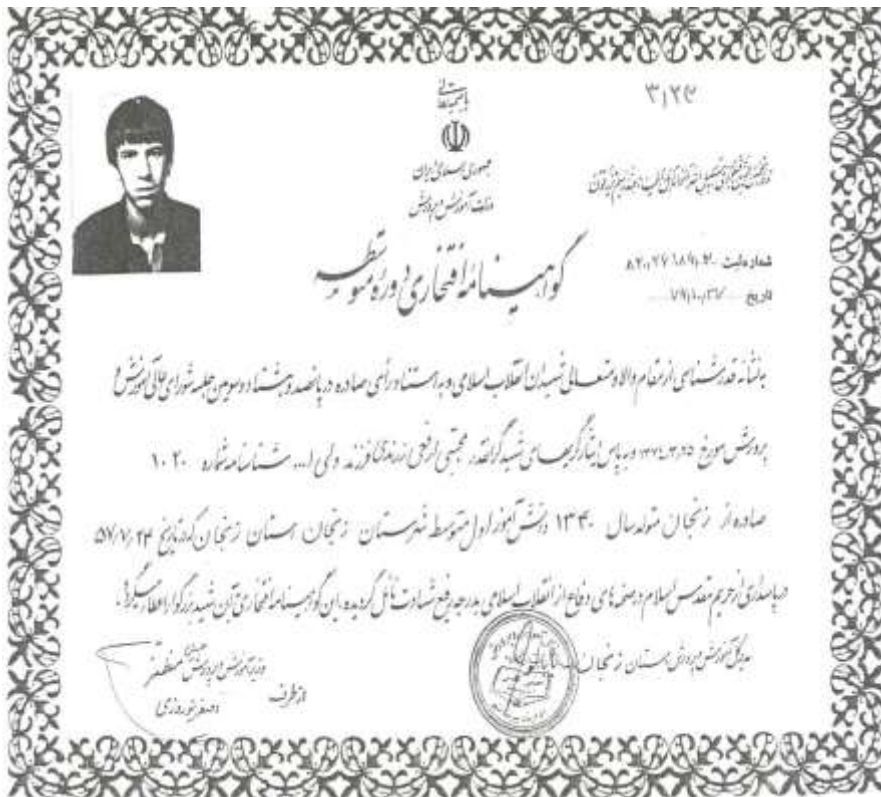 ۳۱۲۴
باسمه تعالی
جمهوری اسلامی ایران
وزارت آموزش و پرورش
شماره ثبت
تاریخ ۷۹/۱۰/
گواهینامه افتخاری دوره متوسطه
به نشانه قدرشناسی از مقام والا و متعالی شهیدان انقلاب اسلامی و به استناد رأی صادره در پانصد و هشتاد و سومین جلسه شورای عالی آموزش و
پرورش مورخ ۱۳۷۴/۳/۲۵ و به پاس ایثارگریهای شهید گرانقدر مجتبی ارفعی زرندی فرزند ولی ا... شناسنامه شماره ۱۰۲۰
صادره از زنجان متولد سال ۱۳۴۰ دانش آموز اول متوسط شهرستان زنجان استان زنجان که در تاریخ ۵۷/۷/۲۴
در پاسداری از حریم مقدس اسلام در صحنه های دفاع از انقلاب اسلامی به درجه رفیع شهادت نائل گردیده، این گواهینامه افتخاری آن شهید بزرگوار اعطا میگردد.
مدیرکل آموزش و پرورش استان زنجان
وزیر آموزش و پرورش حسین مظفر
از طرف
اصغر نوروزی